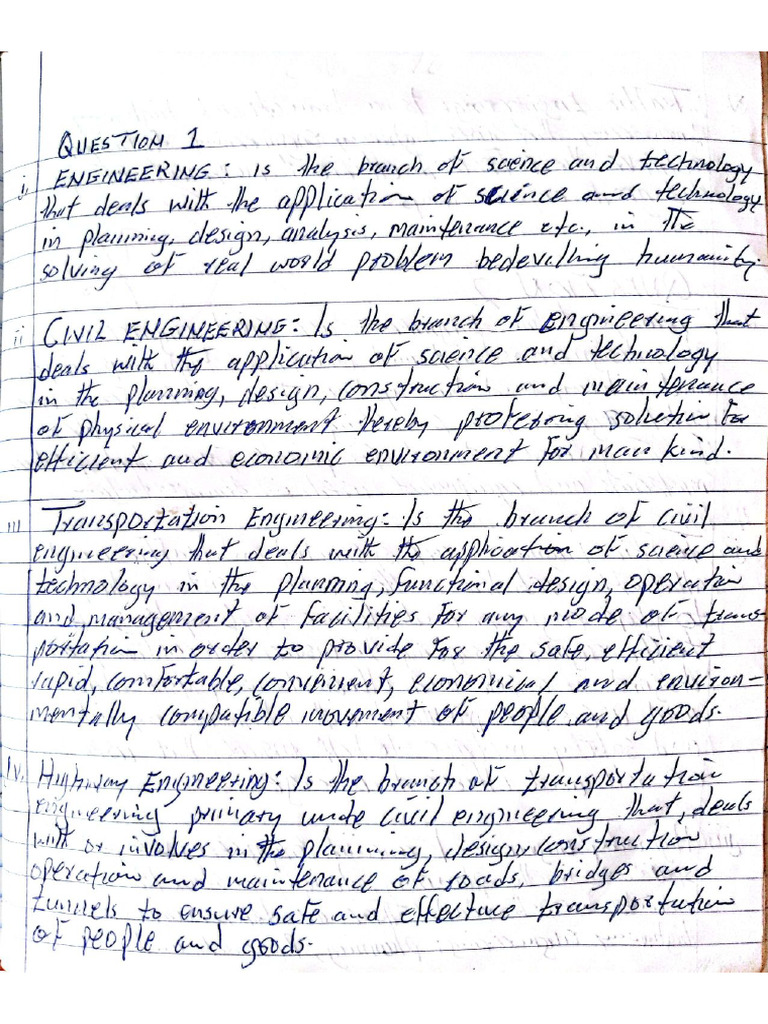 QUESTION 1
i. ENGINEERING: is the branch of science and technology
that deals with the application of science and technology
in planning, design, analysis, maintenance etc., in the
solving of real world problem bedevilling humanity.
ii CIVIL ENGINEERING: Is the branch of engineering that
deals with the application of science and technology
in the planning, design, construction and maintenance
of physical environment thereby profering solution for
efficient and economic environment for man kind.
iii Transportation Engineering: Is the branch of civil
engineering that deals with the application of science and
technology in the planning, functional design, operation
and management of facilities for any mode of trans-
portation in order to provide for the safe, efficient
rapid, comfortable, convenient, economical and environ-
mentally compatible movement of people and goods.
iv. Highway Engineering: Is the branch of transportation
engineering primary unde civil engineering that, deals
with or involves in the planning, design, construction
operation and maintenance of roads, bridges and
tunnels to ensure safe and effective transportation
of people and goods.